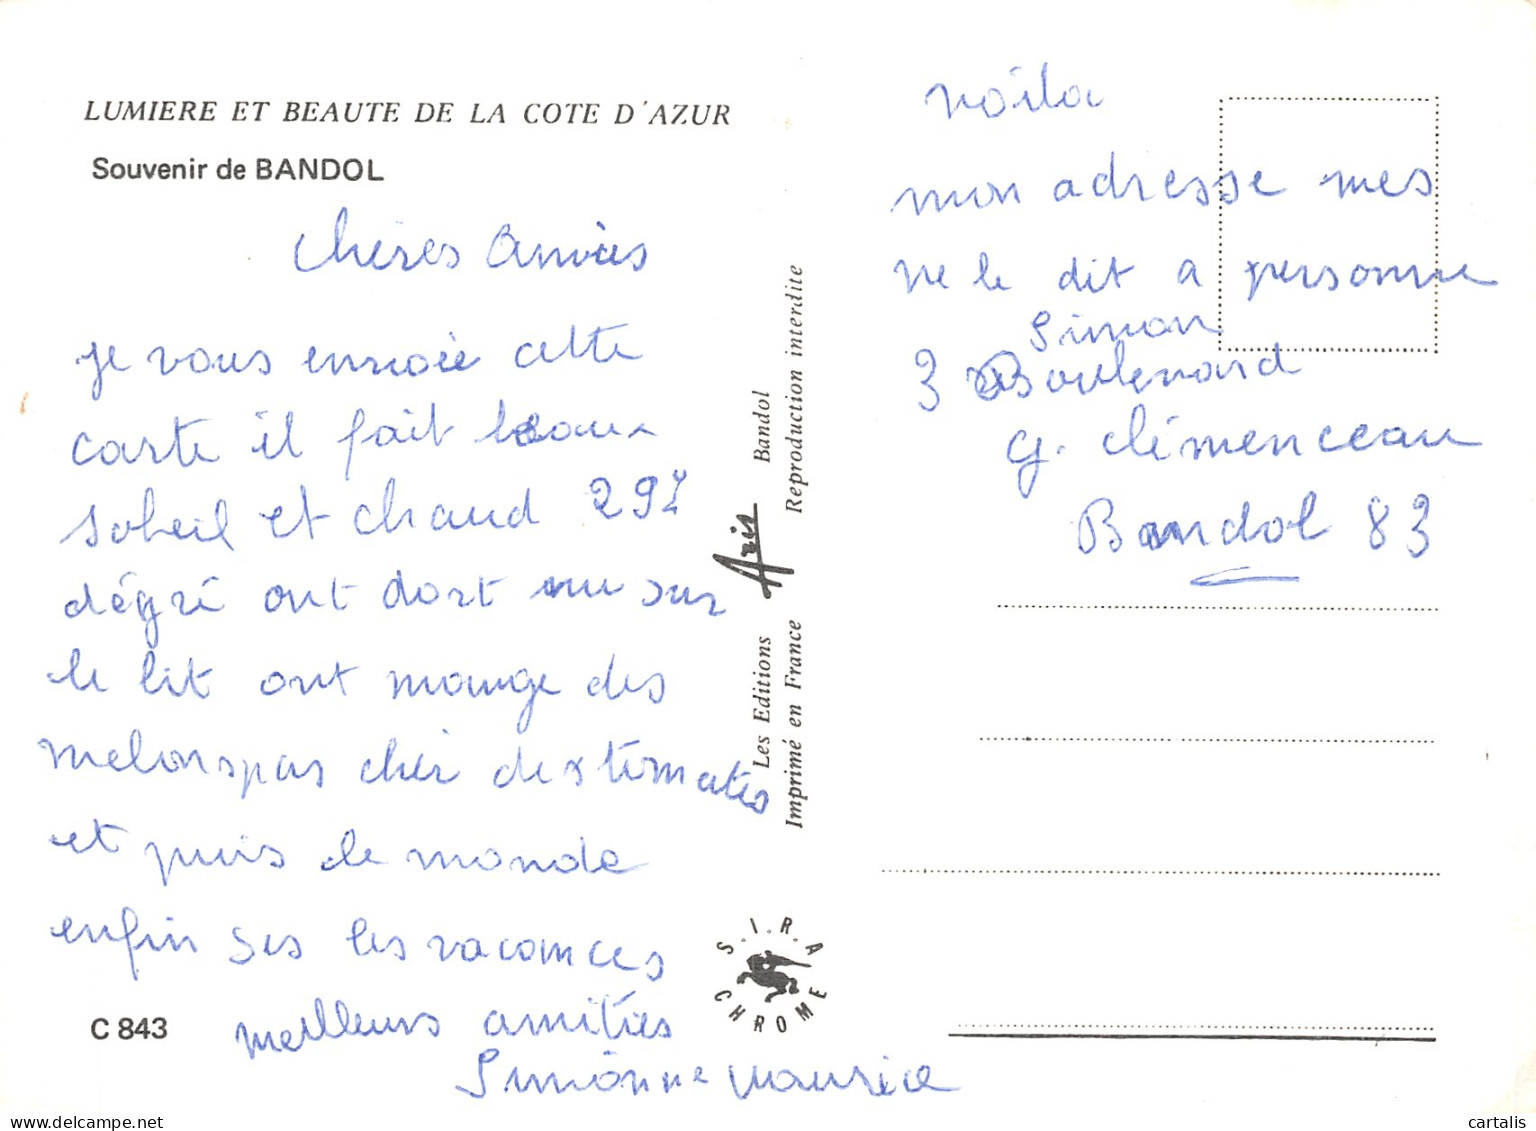 LUMIERE ET BEAUTE DE LA COTE D'AZUR
Souvenir de BANDOL
Chères Amies
je vous envoie cette
carte il fait beau
soleil et chaud 29
dégré ont dort nu sur
le lit ont mange des
melons pas chèr des tomates
et puis le monde
enfin ses les vacances
meilleurs amitiés
Simonne Maurice
C 843
Les Editions Aris Bandol
Imprimé en France Reproduction interdite
S.I.R.A
CHROME
voila
mon adresse mes
ne le dit a personne
Simon
3 Boulevard
G. Clémenceau
Bandol 83
cartalis